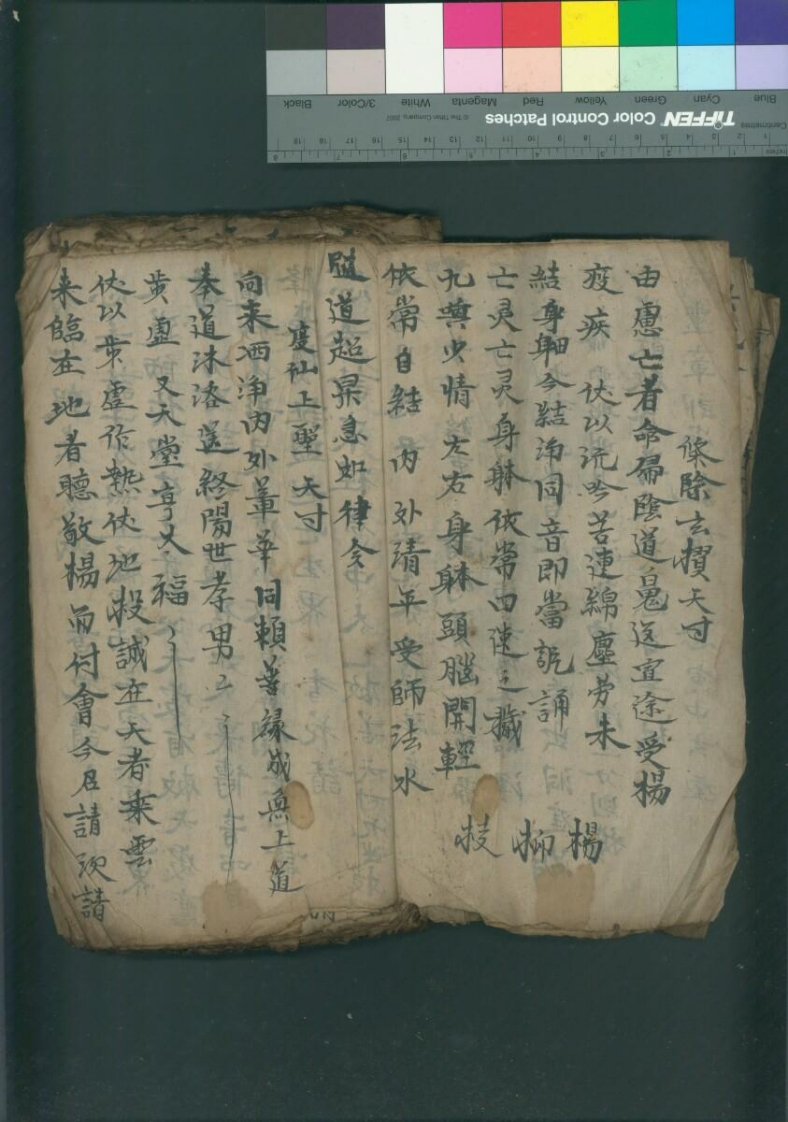 除去攢天寸
由慮亡者命歸陰道鬼送宜途受楊
疫疾 伏以沉吟苦連綿塵勞未
結身軀今結淨同音即當訖誦
亡灵亡灵身躰依常四速之
九典火情左右身躰頭腦開輕
依常自結 內外清年受師法水
楊柳枝
隨道超昇急如律令
度仙上聖天寸
向來洒淨內外葷華同賴善緣成無上道
奉道沐洛送終陽世孝男
黄虚 天堂享大福
伏以黄虚作熱伏地投誠在天者乘雲
来臨在地者聽敬楊而付會今启請 請
Blue Cyan Green Yellow Red Magenta White 3/Color Black
TIFFEN Color Control Patches © The Tiffen Company, 2007
Centimetres
Inches